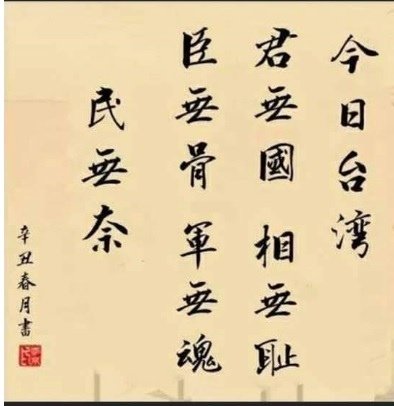 今日台湾
君無國 相無耻
臣無骨 軍無魂
民無奈
辛丑春月書